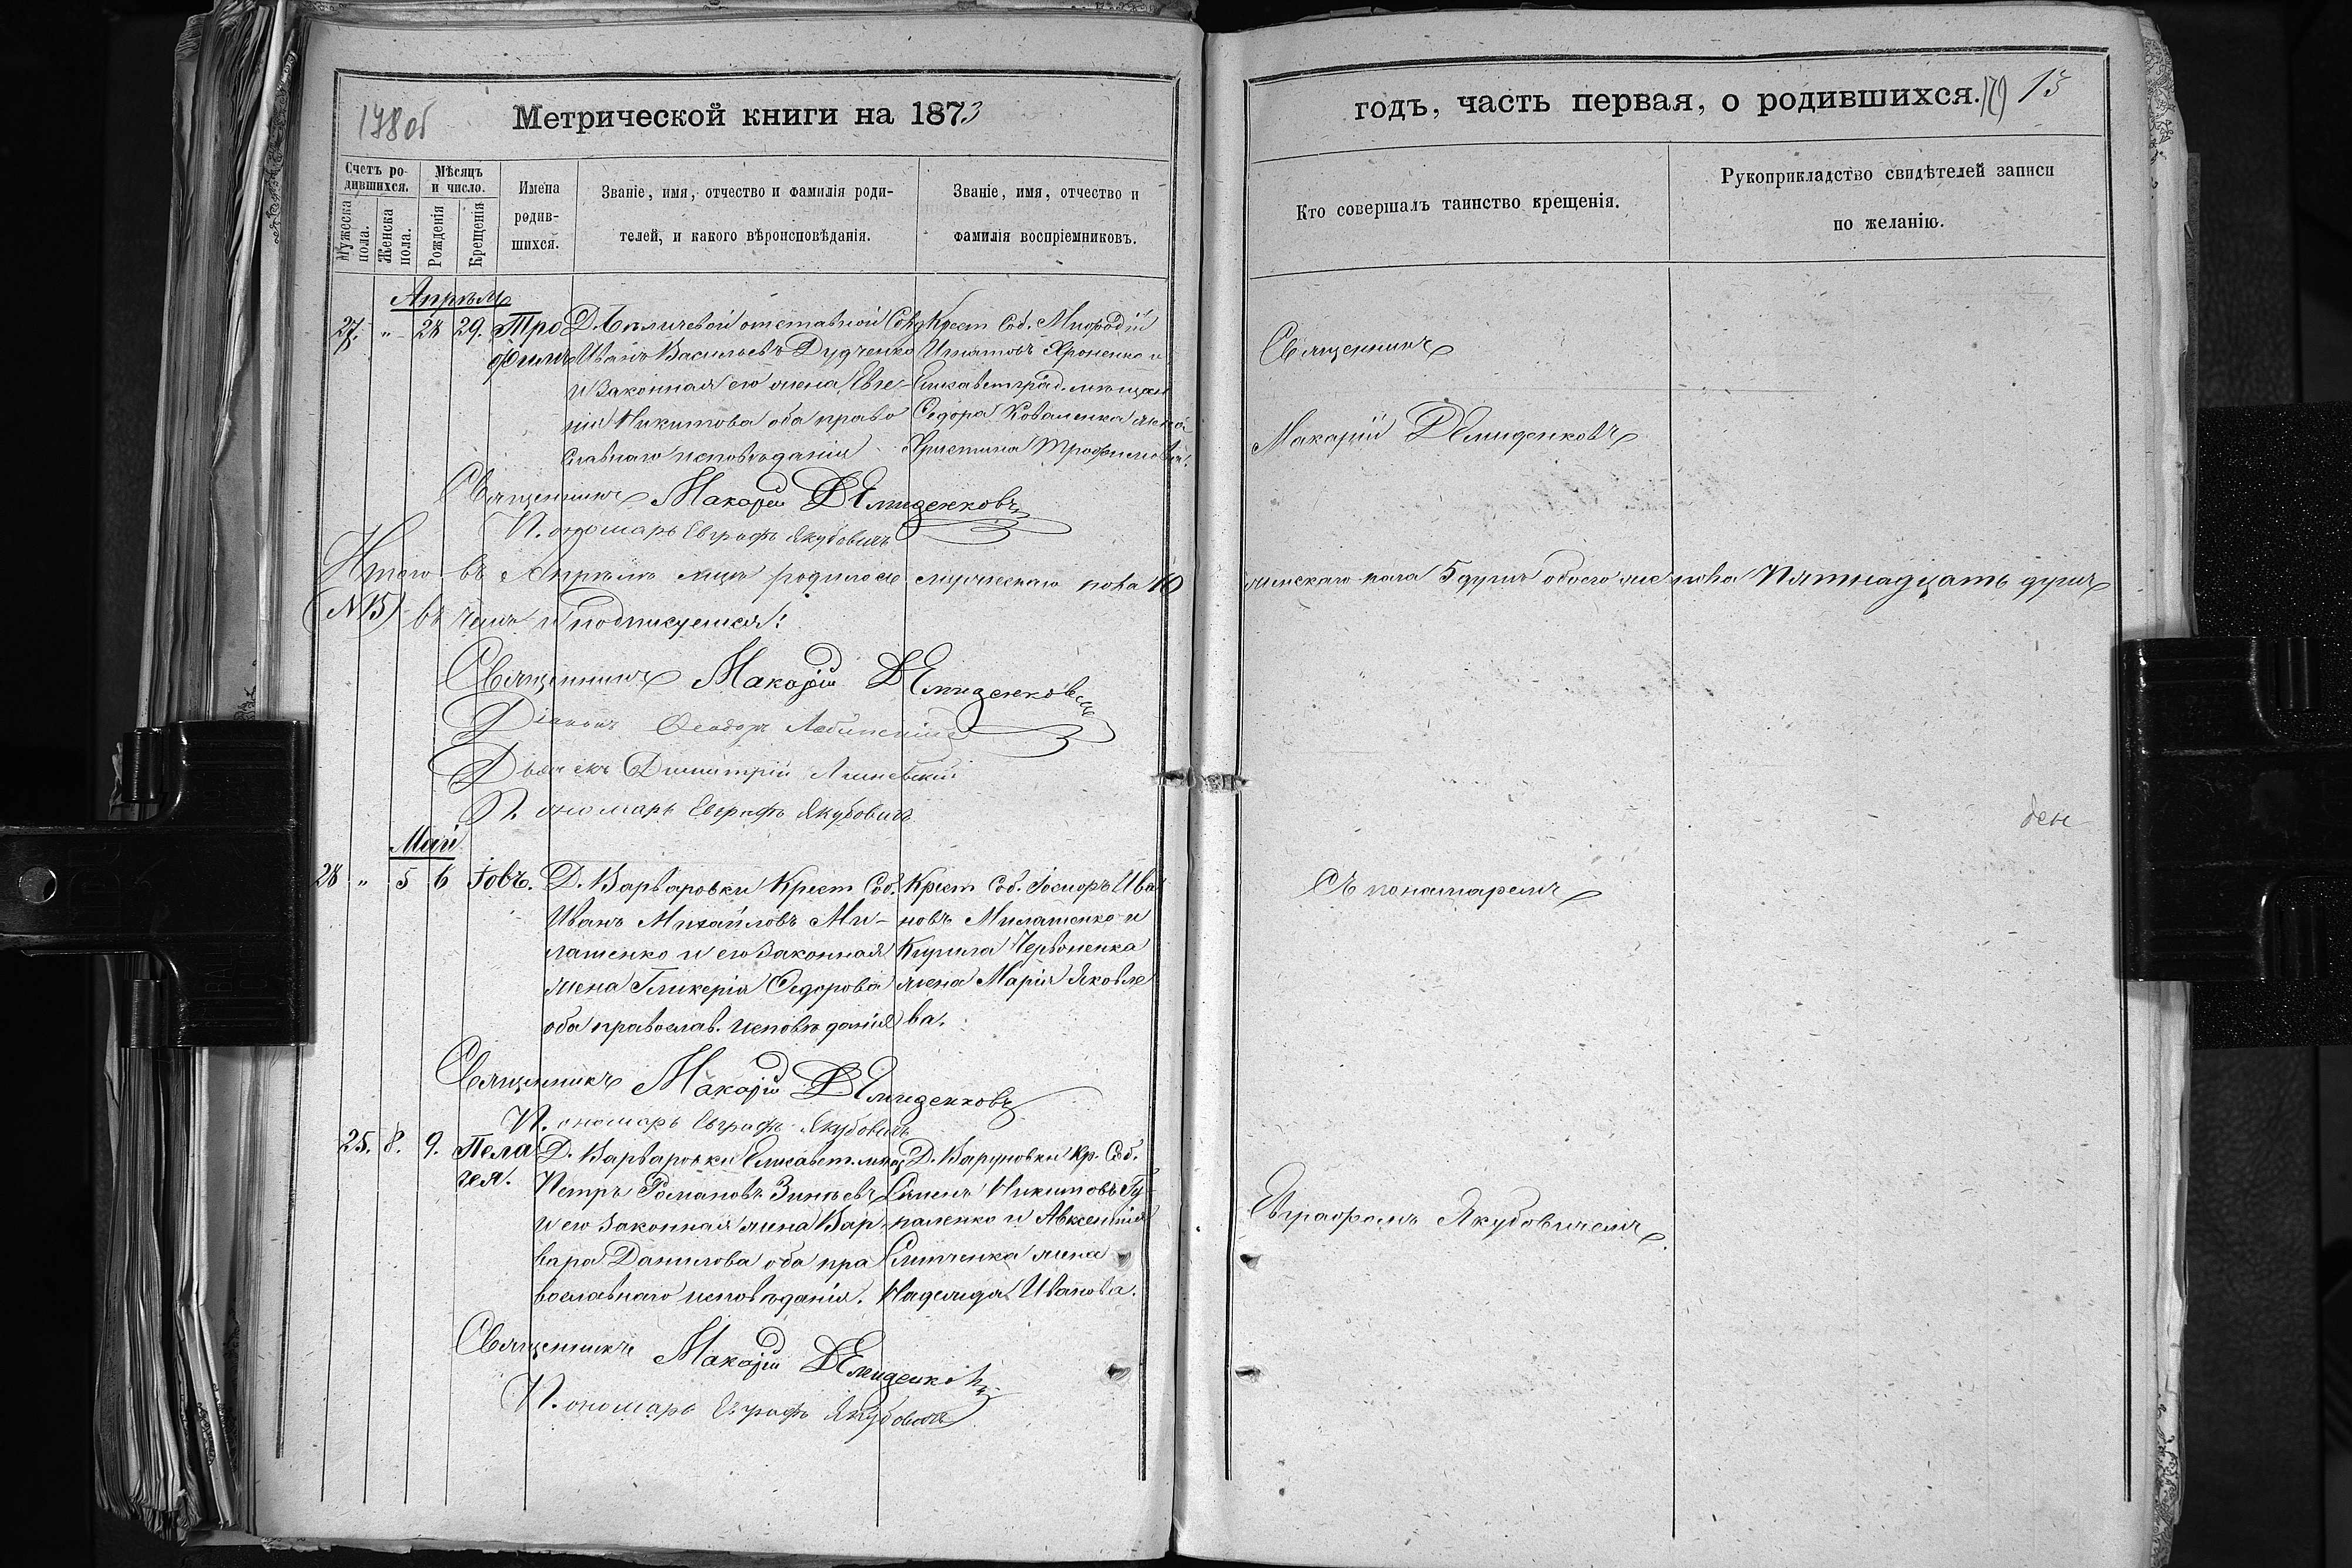 178об
Метрической книги на 1873
Счетъ родившихся.
Мѣсяцъ и число.
Мужеска пола.
Женска пола.
Рожденія
Крещенія
Имена родившихся.
Званіе, имя, отчество и фамилія родителей, и какого вѣроисповѣданія.
Званіе, имя, отчество и фамилія воспріемниковъ.
Апрѣль
27. " 28 29. Трофимъ
отставной
Иванъ Васильевъ Дудченко
и законная его жена Евге-
нія Никитова оба право
славнаго исповѣданія
Крест. Соб.
Игнатовъ Яроненко и
Елисаветград. мѣщан
Сидора Коваленка жена
Христина Трофимова.
Священникъ Макарій Демиденковъ
Пономарь Евграфъ Якубовичъ
Итого въ Апрѣлѣ мцѣ родилось мужескаго пола 10
(№15) въ чемъ и подписуемся:
Священникъ Макарій Демиденковъ
Діаконъ Феодоръ
Дьячекъ Димитрій
Пономарь Евграфъ Якубовичъ
Май
28 " 5 6 Іовъ.
Д. Варваровки Крест. Соб.
Иванъ Михайловъ Ми-
лашенко и его законная
жена Гликерія Федорова
оба православ. исповѣданія
Крест. Соб. Іосифъ Ива
новъ Милашенко и
Кирила Червоненка
жена Марія Яковле
ва.
Священникъ Макарій Демиденковъ
Пономарь Евграфъ Якубовичъ
25. 8. 9. Пелагея.
Д. Варваровки Елисавет. мѣщ.
Петръ Романовъ Зинѣевъ
и его законная жена Вар-
вара Данилова оба пра
вославнаго исповѣданія.
Д. Варваровки Кр. Соб.
Семенъ Никитовъ Гу-
паленко и Авксентія
Слипченка жена
Надежда Иванова.
Священникъ Макарій Демиденковъ
Пономарь Евграфъ Якубовичъ
годъ, часть первая, о родившихся. 179 13
Кто совершалъ таинство крещенія.
Рукоприкладство свидѣтелей записи по желанію.
Священникъ
Макарій Демиденковъ
женскаго пола 5 душъ обоего же пола Пятнадцать душъ
Съ понамаремъ
Евграфомъ Якубовичемъ.